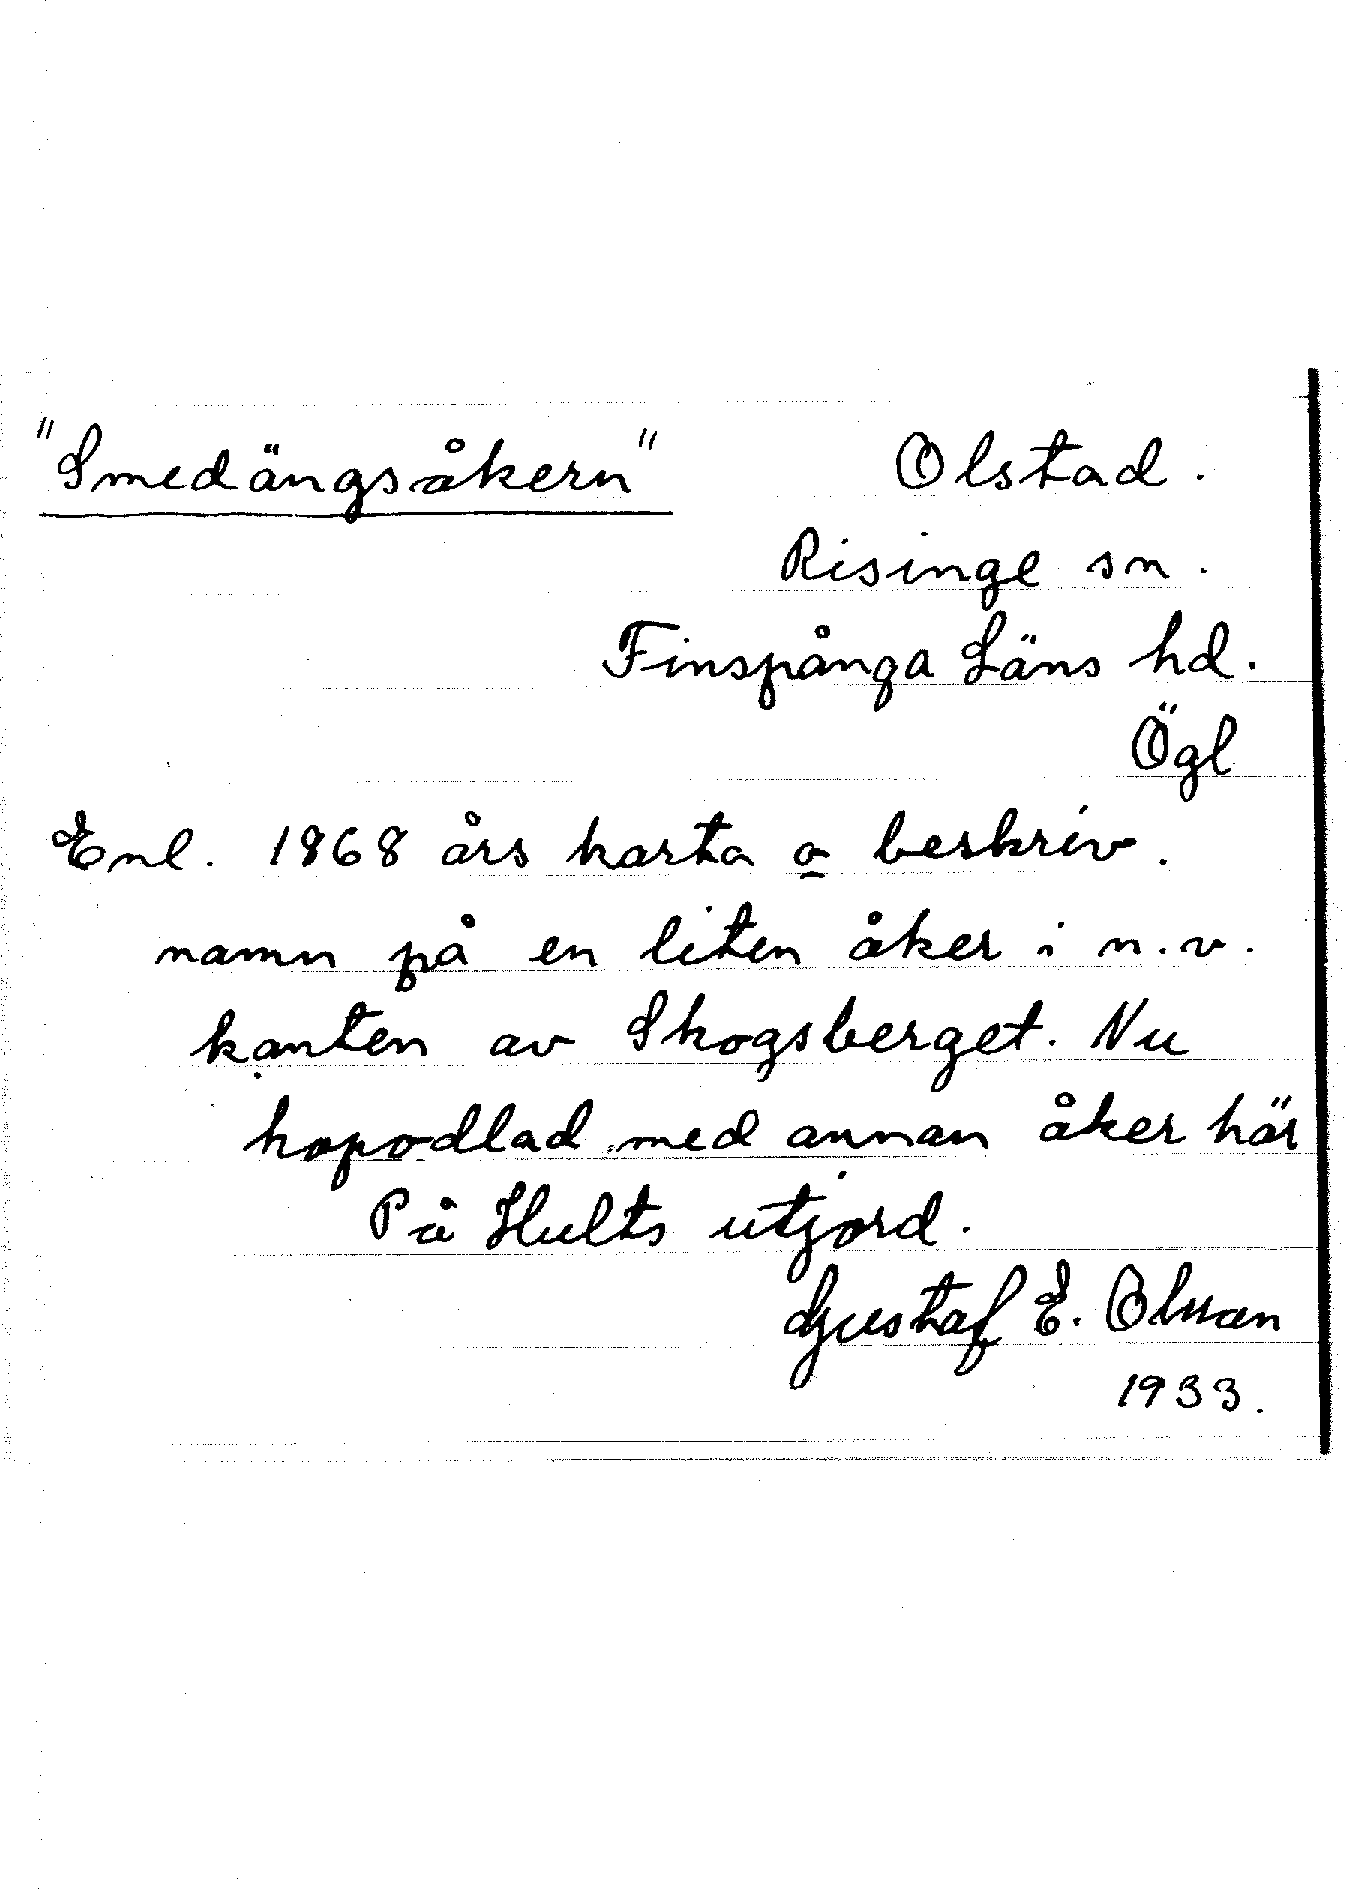 "Smedängsåkern" Olstad.
Risinge sn.
Finspånga Läns hd.
Ögl
Enl. 1868 års karta o beskriv.
namn på en liten åker i n.v.
kanten av Skogsberget. Nu
hopodlad med annan åker här
På Hults utjord.
Gustaf E. Olsson
1933.